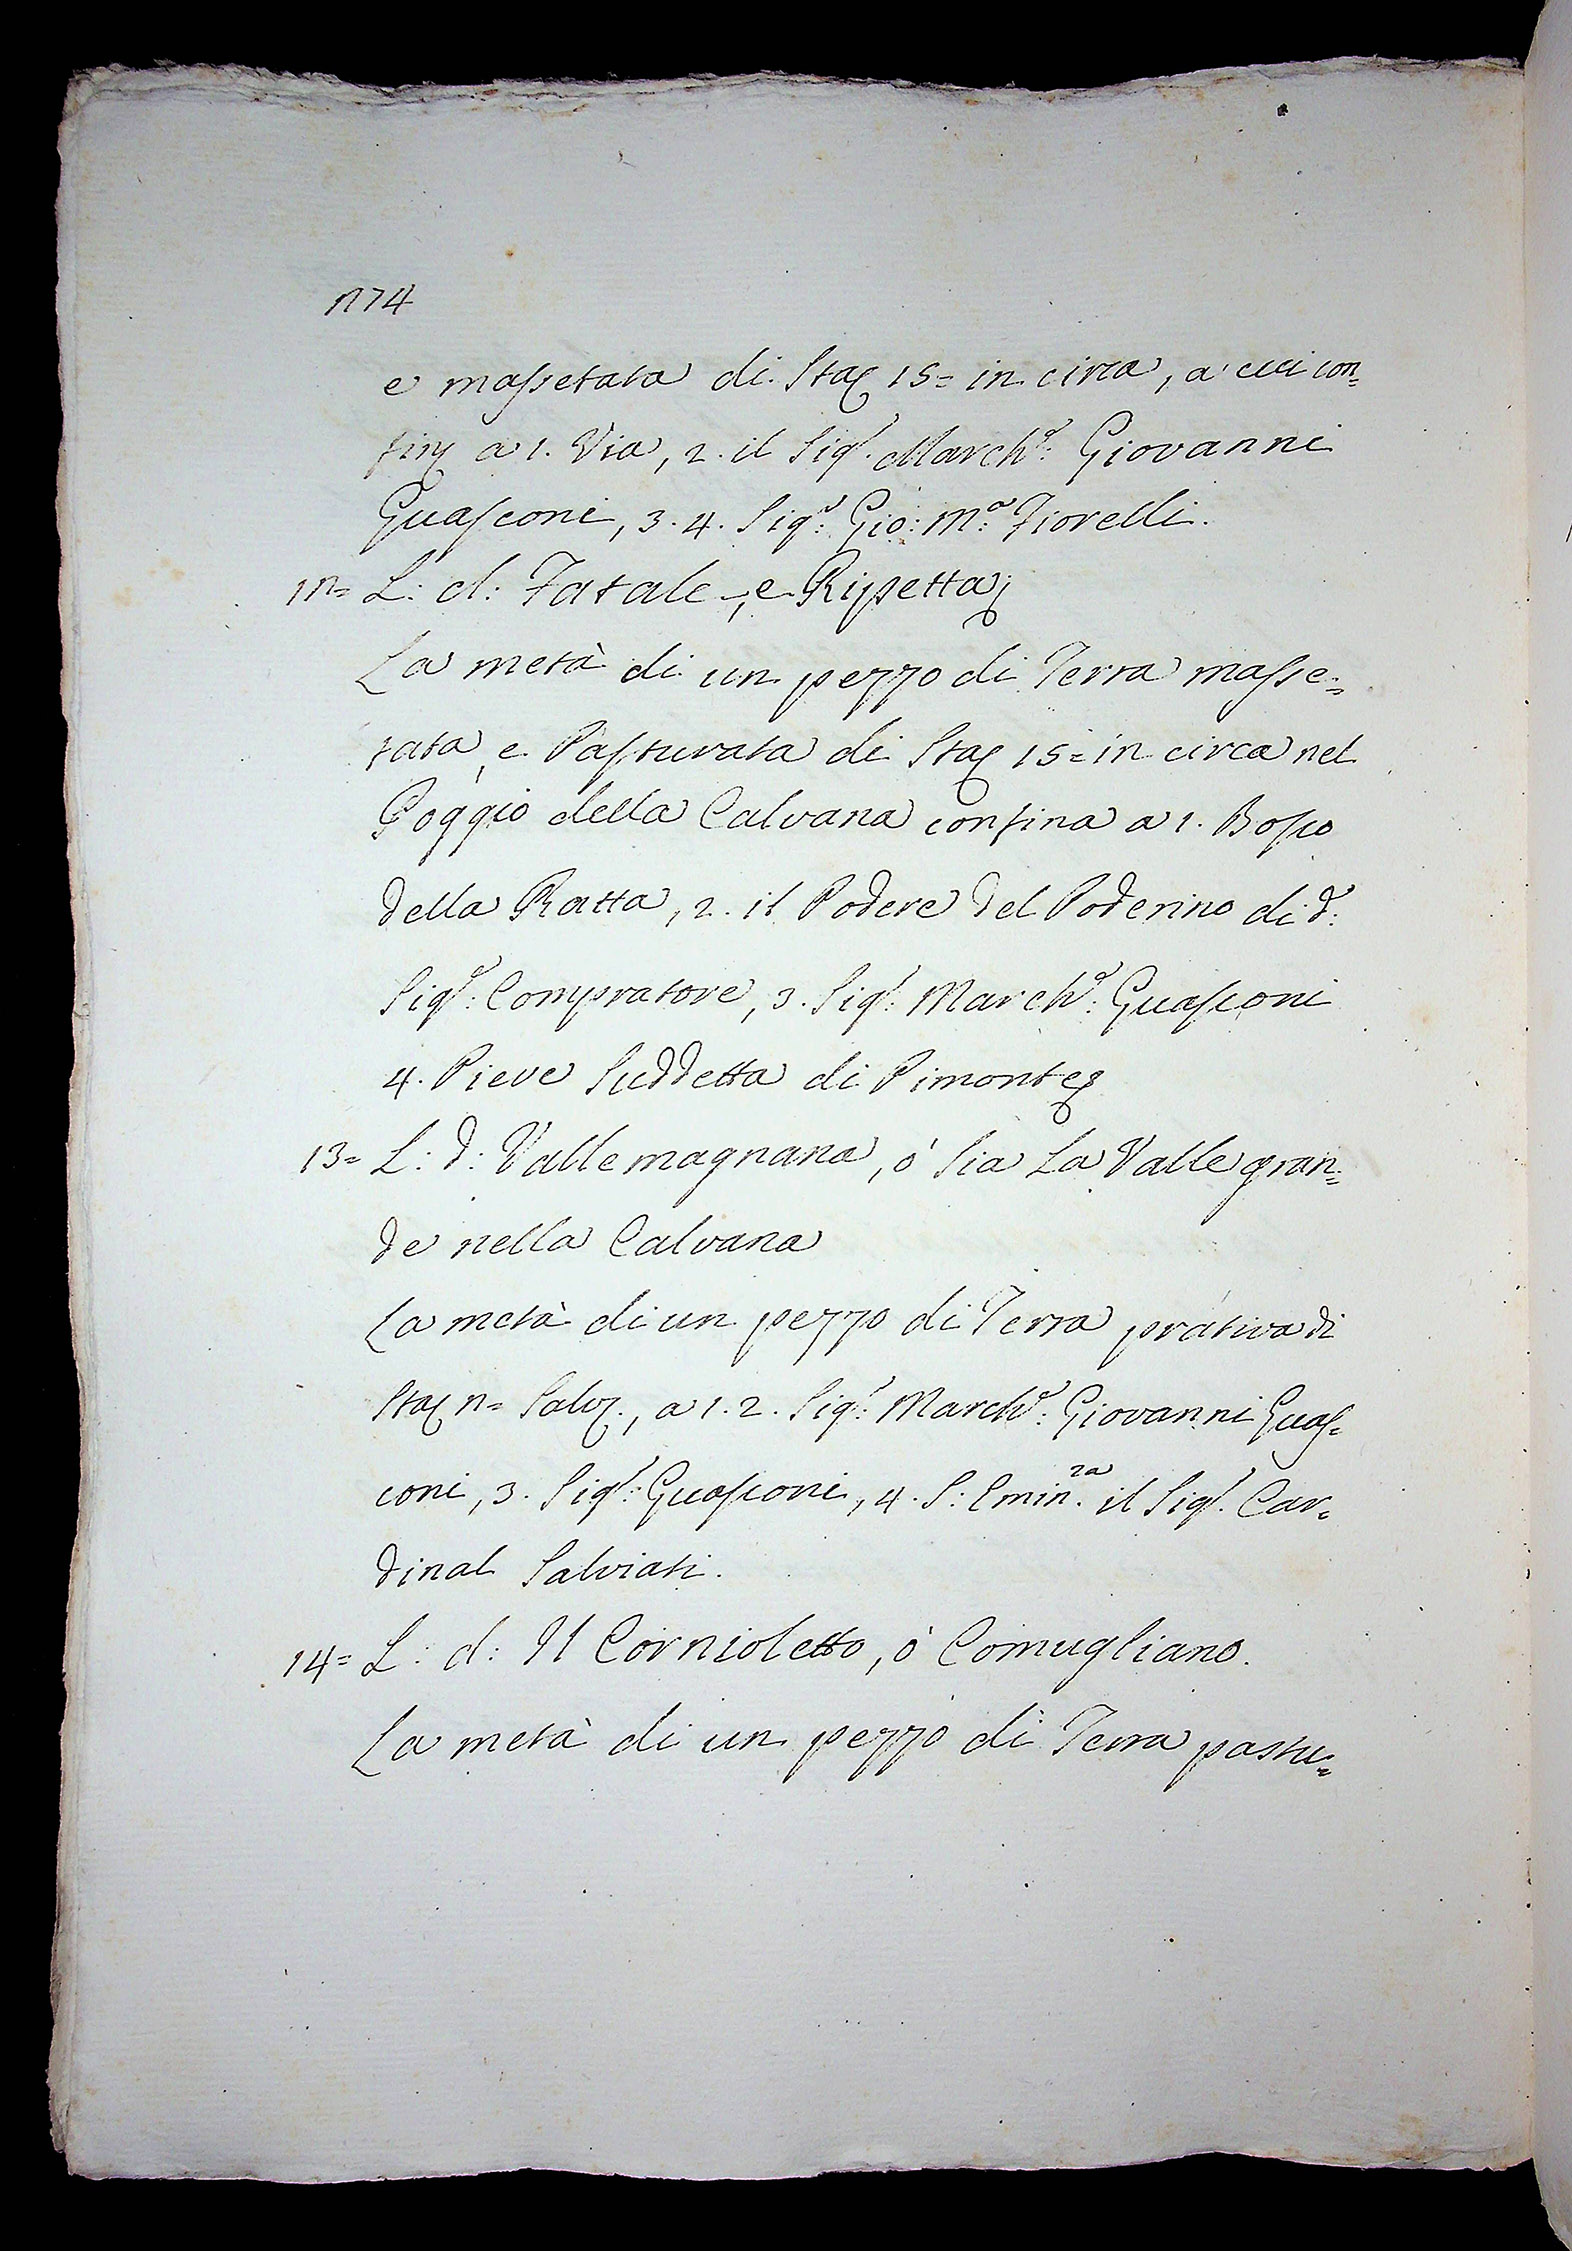 1774
e massetata di Sta 15= in circa, a cui con=
fin a 1. Via, 2. il Sigr. Marche: Giovanni
Guasconi, 3. 4. Sigr: Gio: Ma: Fiorelli.
12= L: d: Fatale, e Ripetta
La metà di un pezzo di Terra masse=
tata, e Pasturata di Sta 15= in circa nel
Poggio della Calvana confina a 1. Bosco
della Ratta, 2. il Podere del Poderino di d:
Sigr: Compratore, 3. Sigr: Marche: Guasconi
4. Pieve Suddetta di Pimonte
13= L: d: Valle magnana, ò sia La Valle gran=
de nella Calvana
La metà di un pezzo di Terra prativa di
Sta = Salv., a 1. 2. Sigr: Marche: Giovanni Guas=
coni, 3. Sigr: Guasconi, 4. S: Emin.za il Sigr. Car=
dinal Salviati.
14= L: d: Il Cornioletto, ò Comugliano.
La metà di un pezzo di Terra pastu=